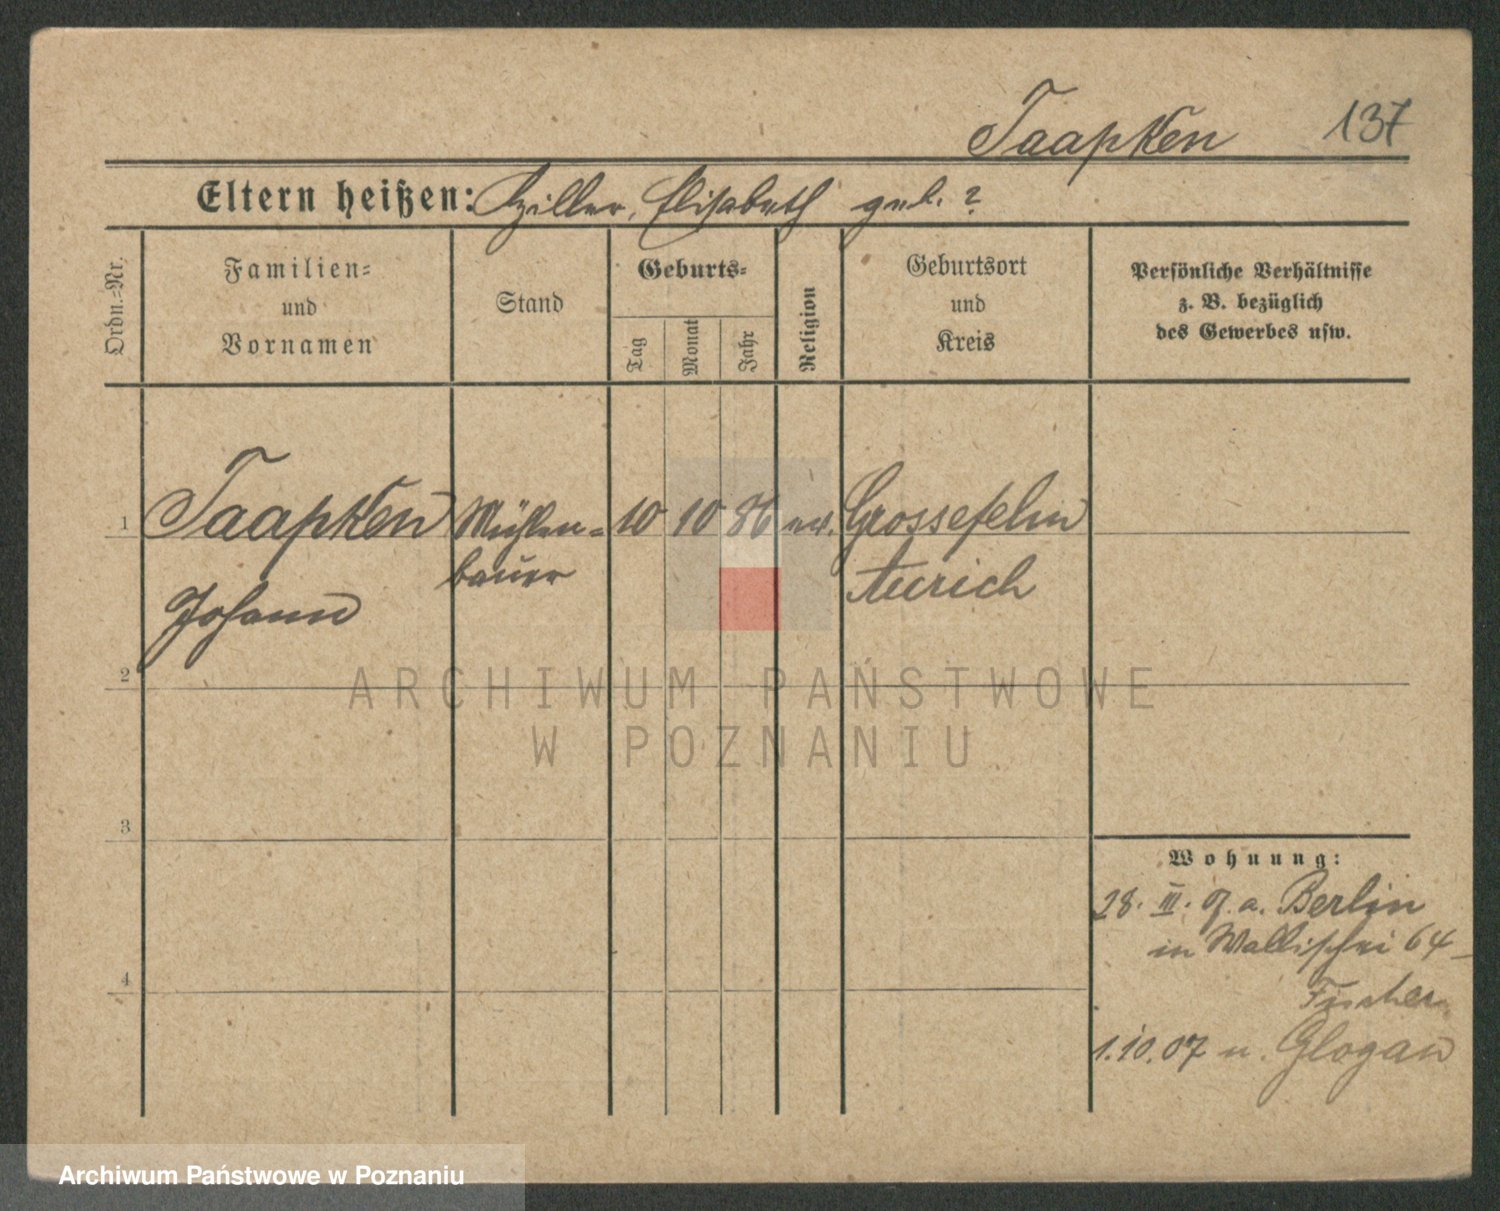 Taapken 137
Eltern heißen: Hiller, Elisabeth geb. ?
Ordn.=Nr.
Familien=
und
Vornamen
Stand
Geburts=
Tag
Monat
Jahr
Religion
Geburtsort
und
Kreis
Persönliche Verhältnisse
z. B. bezüglich
des Gewerbes usw.
1 Taapken Mühlen= 10 10 86 ev. Grossefehn
bauer Aurich
Johann
2
ARCHIWUM PAŃSTWOWE
W POZNANIU
3
Wohnung:
28. III. 07. a. Berlin
in Wallischei 64
Fischer
4
1.10.07 n. Glogau
Archiwum Państwowe w Poznaniu